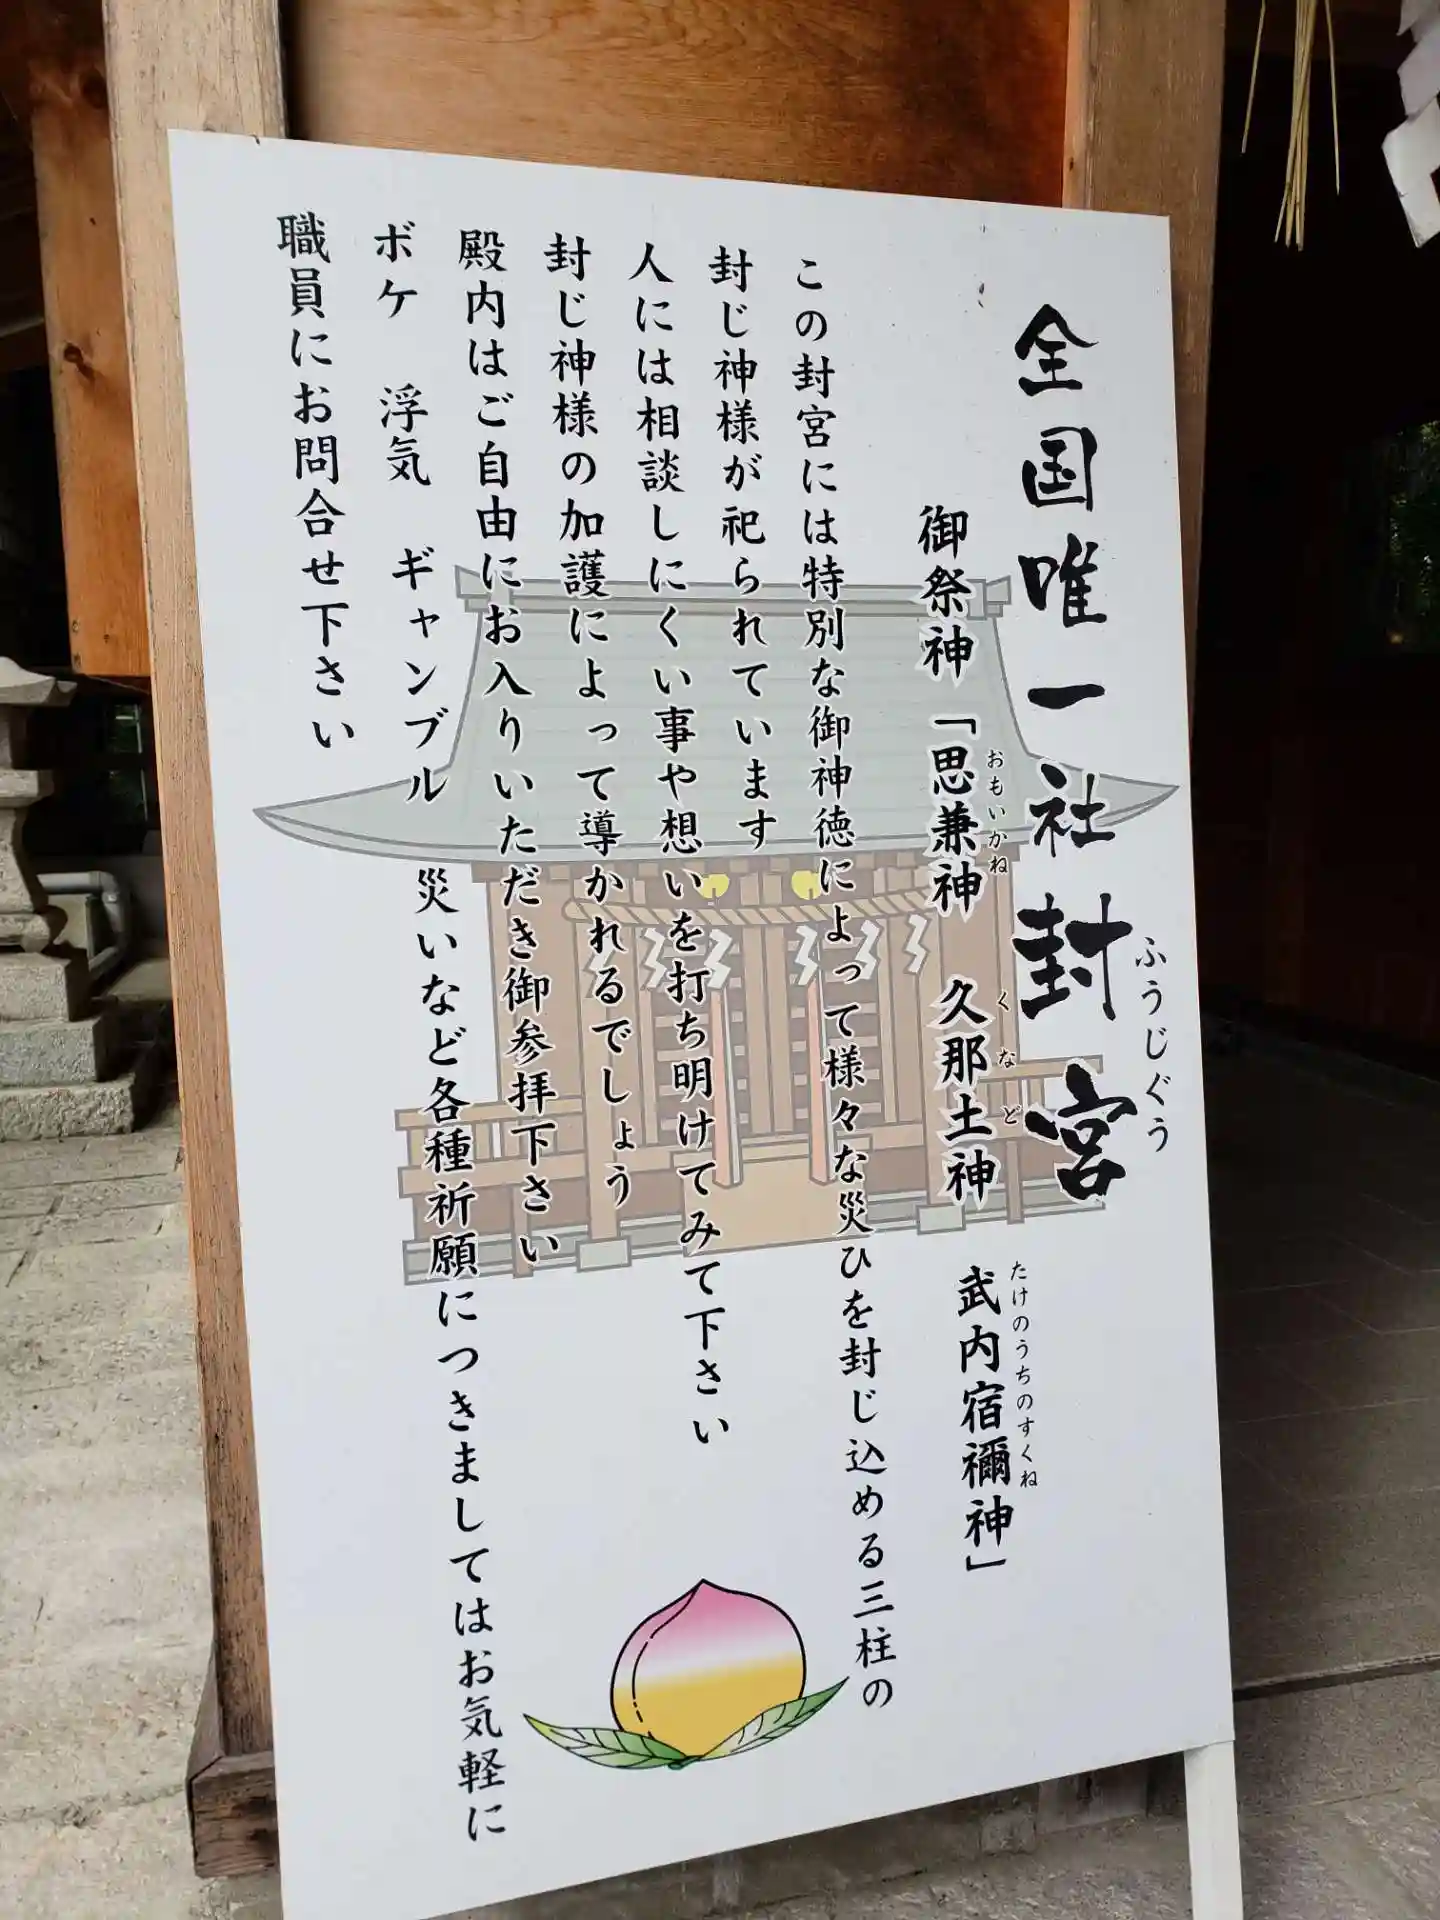 全国唯一社封宮
ふうじぐう
御祭神「思兼神 久那土神 武内宿禰神」
おもいかね くなど たけのうちのすくね
この封宮には特別な御神徳によって様々な災ひを封じ込める三柱の
封じ神様が祀られています
人には相談しにくい事や想いを打ち明けてみて下さい
封じ神様の加護によって導かれるでしょう
殿内はご自由にお入りいただき御参拝下さい
ボケ 浮気 ギャンブル 災いなど各種祈願につきましてはお気軽に
職員にお問合せ下さい